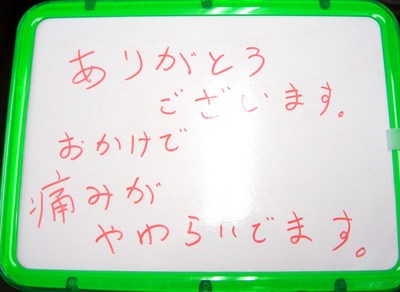 ありがとう
ございます。
おかげで
痛みが
やわらいでます。